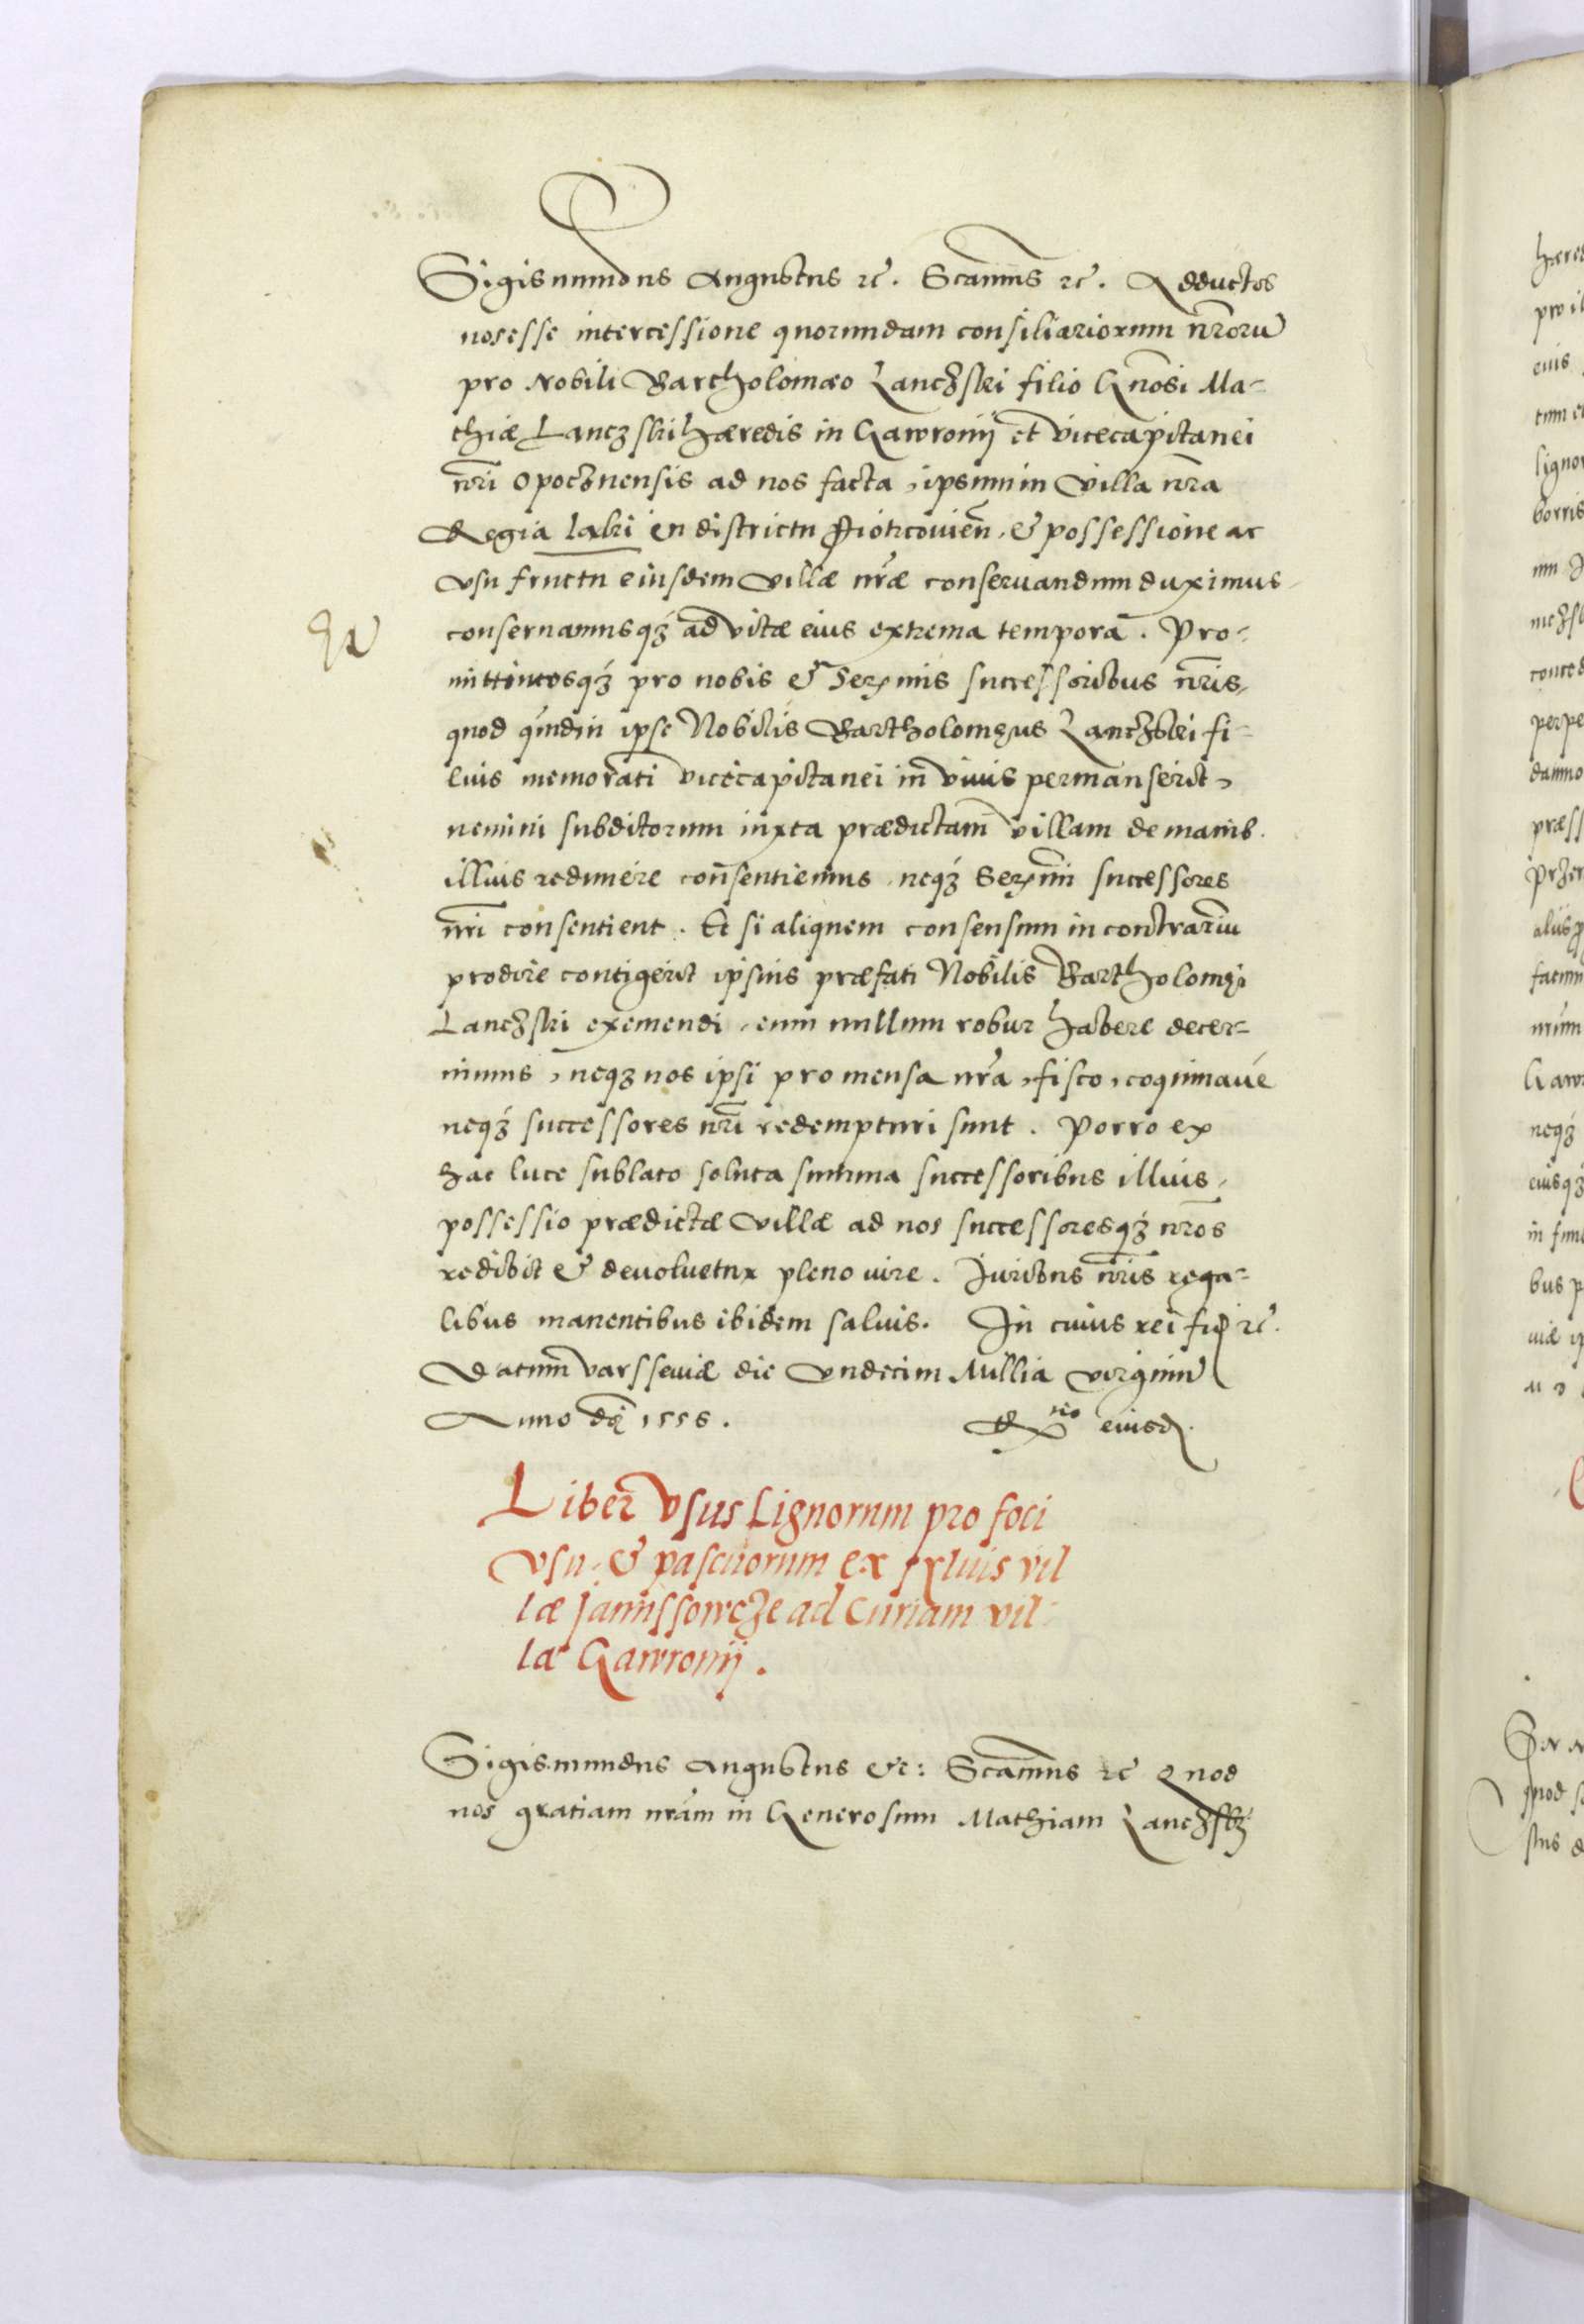 Sigismundus Augustus etc. Scamus etc. Adductos
nos esse intercessione quorundam consiliariorum nr̄orū
pro Nobili Bartholomæo Lanczski filio Gn̄osi Ma-
thiæ Lanczski hæredis in Gawronij et vicecapitanei
nr̄i Opocznensis ad nos facta, ipsum in villa nr̄a
Regia laski in districtu Piotrcovien̄. & possessione ac
vsu fructu eiusdem villæ nr̄æ conseruandum duximus
conseruamusqꝫ ad vitæ eius extrema tempora. Pro-
mittentesqꝫ pro nobis & Serx̄mis successoribus nr̄is,
quod qmdiu ipse Nobilis Bartholomęus Lanczski fi-
lius memorati vicecapitanei in vivis permanserit,
nemini subditorum iuxta prædictam villam de manib.
illius redimere consentiemus, neqꝫ Serx̄mi successores
nr̄i consentient. Et si aliquem consensum in contrariū
prodire contigerit ipsius præfati Nobilis Bartholomęi
Lanczski eximendi, eum nullum robur habere decer-
nimus, neqꝫ nos ipsi pro mensa nr̄a, fisco, coquinaue
neqꝫ successores nr̄i redempturi sunt. Porro ex
hac luce sublato soluta summa successoribus illius,
possessio prædictæ villæ ad nos successoresqꝫ nr̄os
redibit & devoluetur pleno iure. Juribus nr̄is rega-
libus manentibus ibidem saluis. In cuius rei fid etc.
Datum varsseviæ die vndecim Millia virginū
Anno dn̄i 1556. Rxno eiusd.
Liber vsus Lignorum pro foci
vsu, & pascuorum ex syluis vil
læ Janissowcze ad Curiam vil-
læ Gawronij.
Sigismundus Augustus etc: Scamus etc Quod
nos gratiam nr̄am in Generosum Mathiam Lanczski